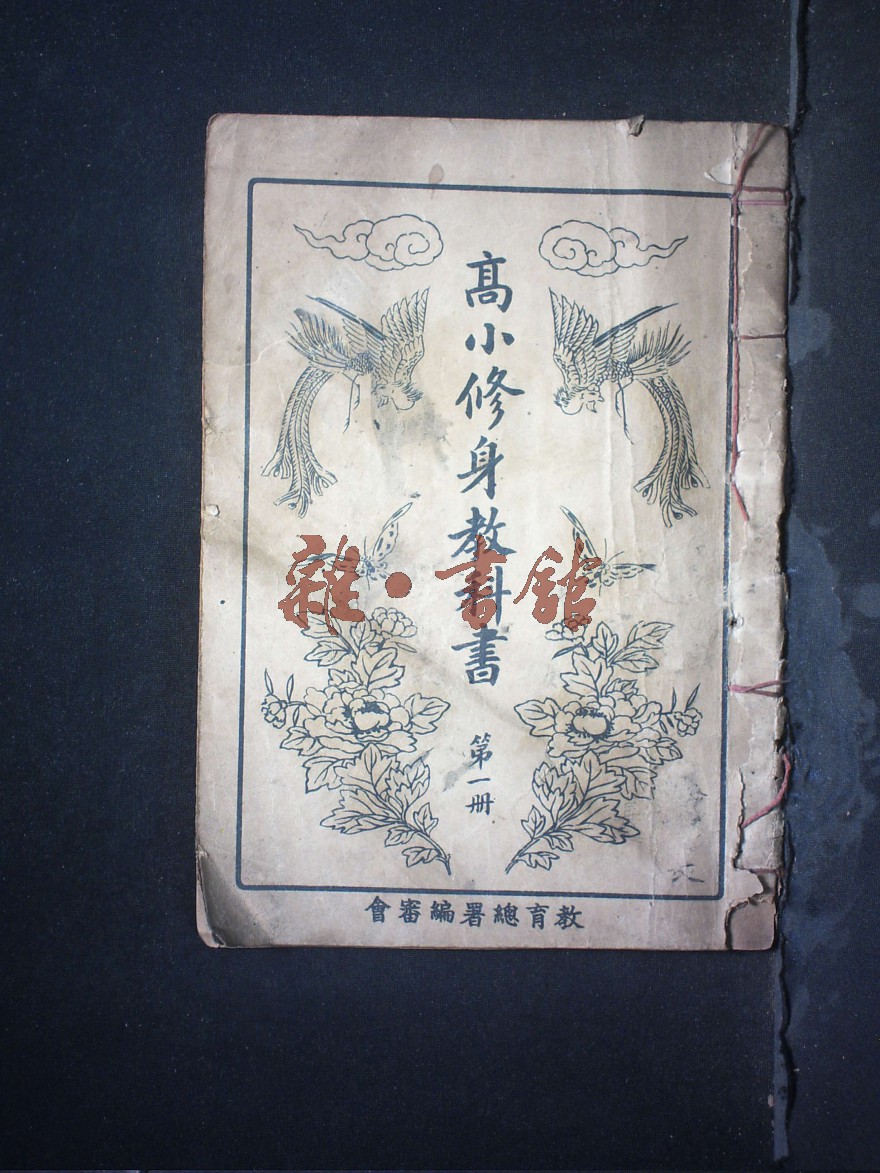 高小修身教科書
第一册
教育總署編審會
雜·書館